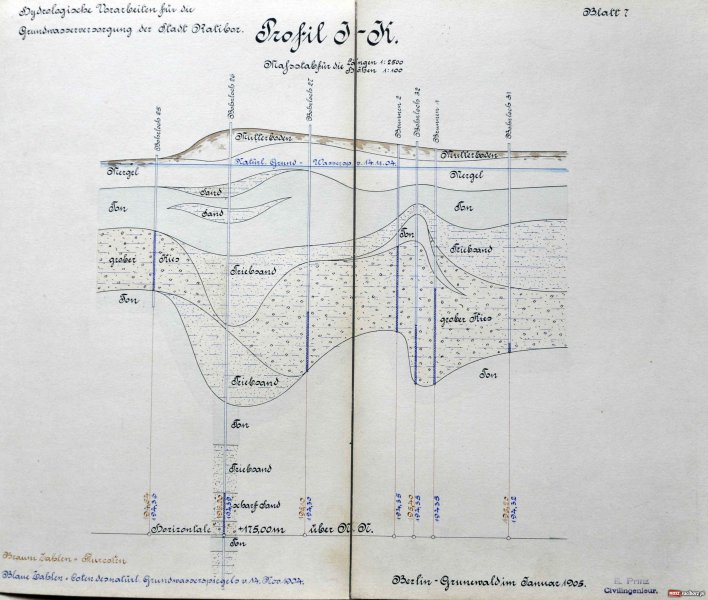 Hydrologische Vorarbeiten für die
Grundwasserversorgung der Stadt Ratibor.
Blatt 7
Profil I-K.
Maßstab für die Längen 1:2500
Höhen 1:100
Bohrloch 25
Bohrloch 26
Bohrloch 27
Brunnen 2
Bohrloch 32
Brunnen 1
Bohrloch 31
Mutterboden
Mutterboden
Natürl. Grund- Wassersp. v. 14.11.04.
Mergel
Mergel
Sand
Ton
Sand
Ton
Ton
Triebsand
grober Kies
Triebsand
Ton
grober Kies
Triebsand
Ton
Ton
Triebsand
scharf. Sand
194,35
194,35
194,32
Horizontale +175,00m über N.N.
Ton
Braune Zahlen = Terrain
Blaue Zahlen = Coten des natürl. Grundwasserspiegels v. 14. Nov. 1904.
Berlin-Grunewald im Januar 1905.
E. Prinz
Civilingenieur.